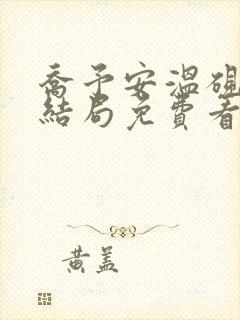 喬予安溫硯
結局免費看
黃蓋